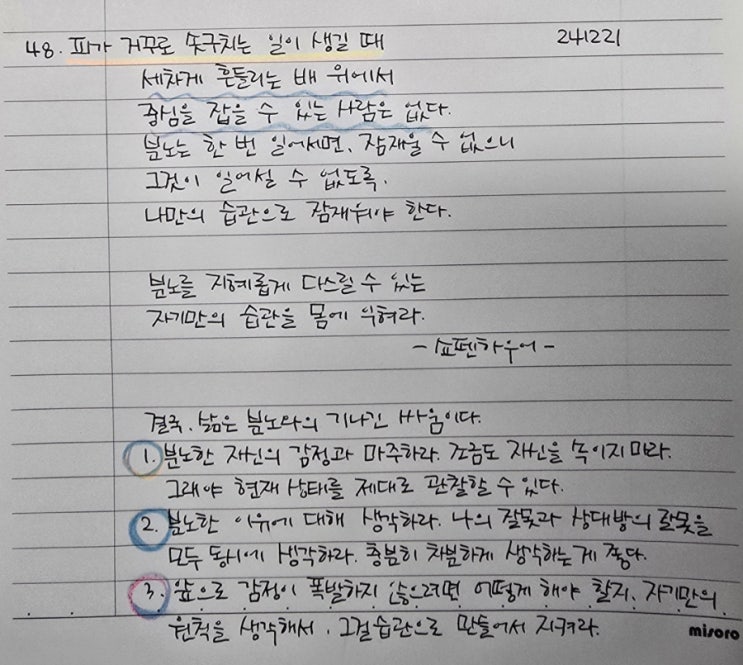 48. 피가 거꾸로 솟구치는 일이 생길 때 241221
세차게 흔들리는 배 위에서
중심을 잡을 수 있는 사람은 없다.
분노는 한 번 일어서면, 잠재울 수 없으니
그것이 일어설 수 없도록,
나만의 습관으로 잠재워야 한다.
분노를 지혜롭게 다스릴 수 있는
자기만의 습관을 몸에 익혀라.
- 쇼펜하우어 -
결국, 삶은 분노와의 기나긴 싸움이다.
1. 분노한 자신의 감정과 마주하라. 조금도 자신을 속이지 마라.
그래야 현재 상태를 제대로 관찰할 수 있다.
2. 분노한 이유에 대해 생각하라. 나의 잘못과 상대방의 잘못을
모두 동시에 생각하라. 충분히 차분하게 생각하는 게 좋다.
3. 앞으로 감정이 폭발하지 않으려면 어떻게 해야 할지, 자기만의
원칙을 생각해서, 그걸 습관으로 만들어서 지켜라.
misoro